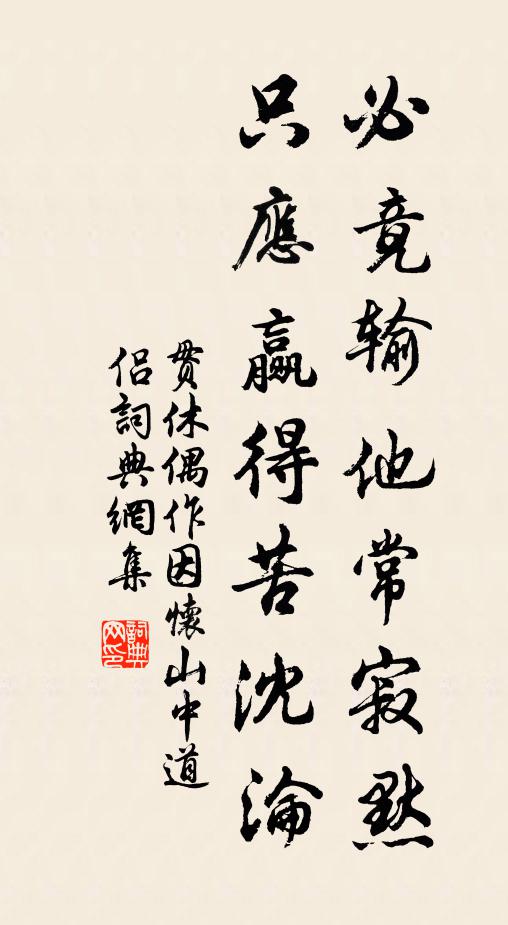 必竟输他常寂默
只應贏得苦沈淪
贯休偶作因懷山中道
侣詞典網集
詞典网印